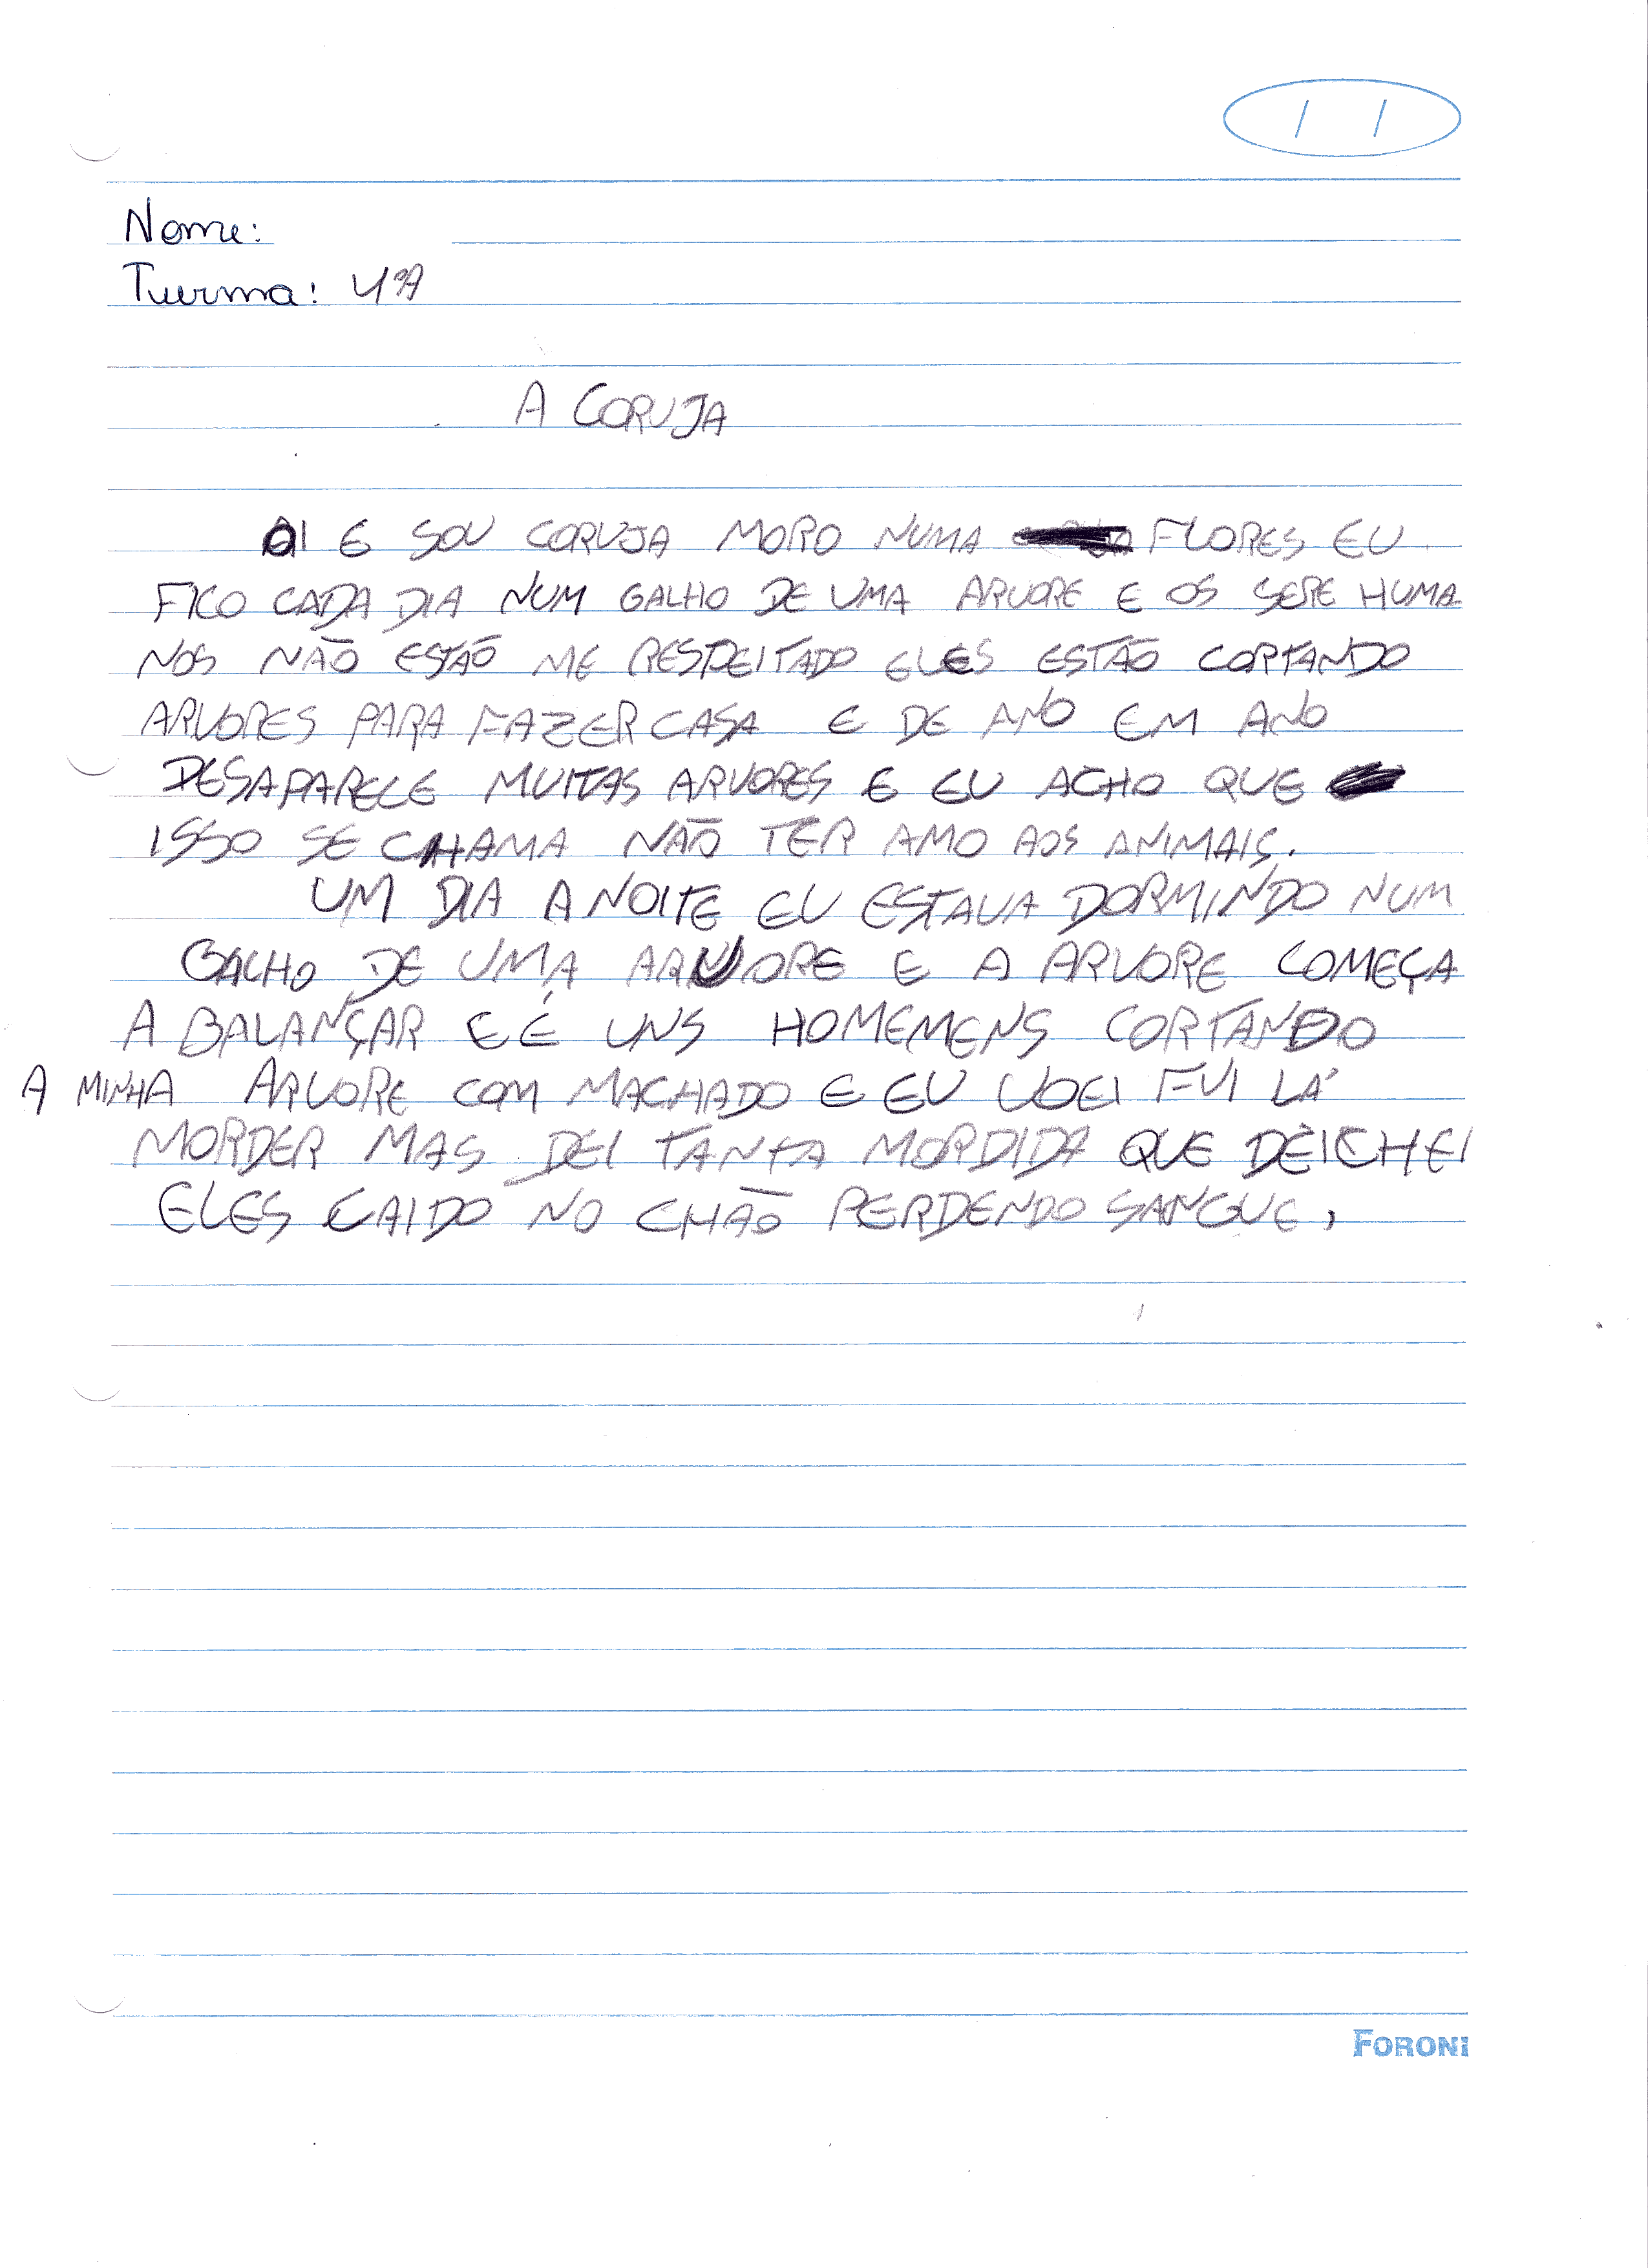 Nome:
Turma: 4ªA
A CORUJA
OI E SOU CORUJA MORO NUMA FLORES EU
FICO CADA DIA NUM GALHO DE UMA ARVORE E OS SERE HUMA
NOS NÃO ESTÃO ME RESPEITADO ELES ESTÃO CORTANDO
ARVORES PARA FAZER CASA E DE ANO EM ANO
DESAPARECE MUITAS ARVORES E EU ACHO QUE
ISSO SE CHAMA NÃO TER AMO AOS ANIMAIS.
UM DIA A NOITE EU ESTAVA DORMINDO NUM
GALHO DE UMA ARVORE E A ARVORE COMEÇA
A BALANÇAR E É UNS HOMEMENS CORTANDO
A MINHA ARVORE COM MACHADO E EU VOEI FUI LÁ
MORDER MAS DEI TANTA MORDIDA QUE DEICHEI
ELES CAIDO NO CHÃO PERDENDO SANGUE,
FORONI